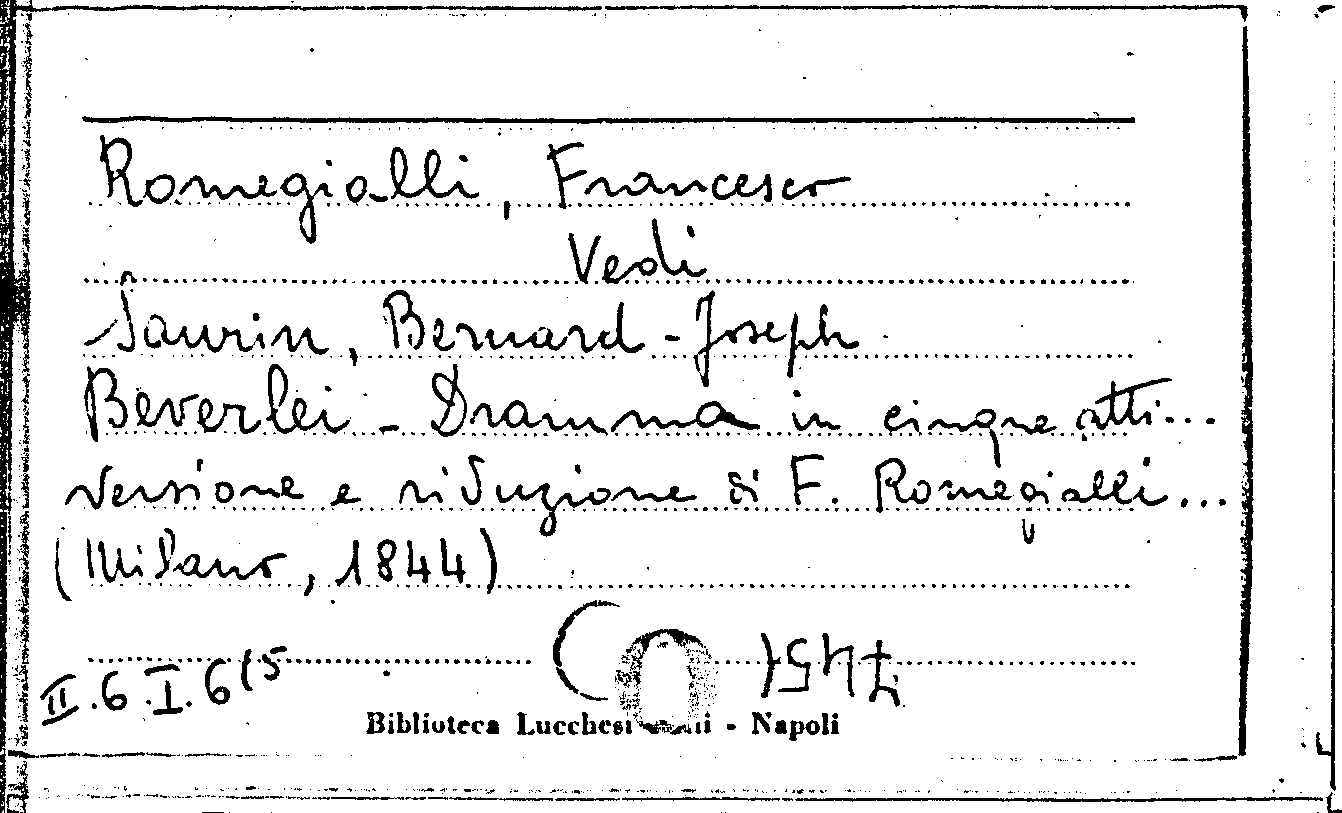 Romegialli, Francesco
Vedi
Saurin, Bernard-Joseph
Beverlei - Dramma in cinque atti...
versione e riduzione di F. Romegialli...
(Milano, 1844)
II.6.I.6(5
Biblioteca Lucchesi - Napoli